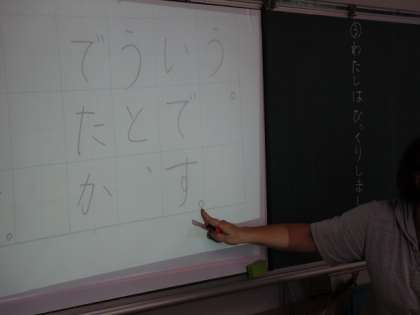 ③わたしはびっくりしまし
う。
いです。
うと、
でたか
。